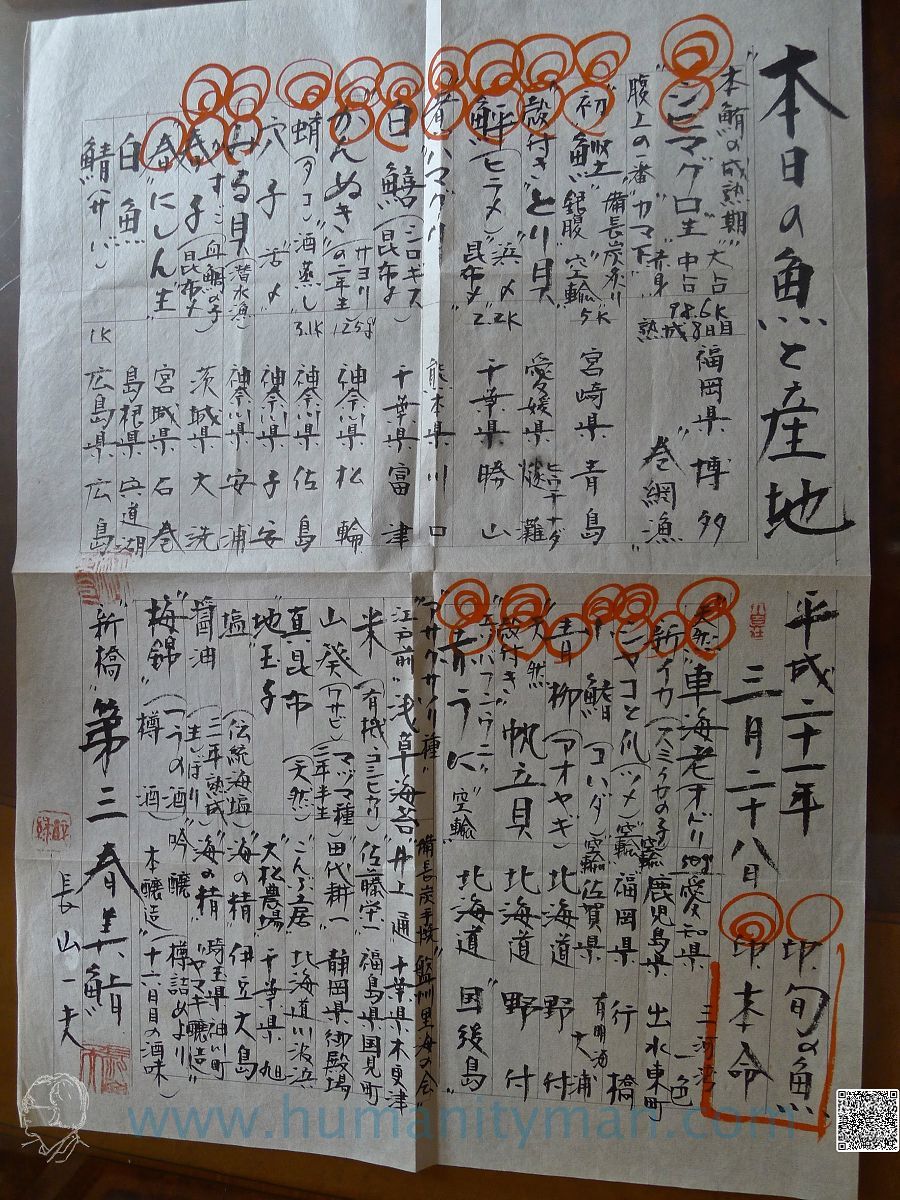 本日の魚と産地
"本鮪の成熟期"
シビマグロ 生 大占 中占 98.6K 熟成8日目 福岡県 博多
腹上の一番"カマ下" 赤身 "巻網漁"
初鰹 備長炭炙り 銀腹 空輸 5K 宮崎県 青島
"殻付き"とり貝 愛媛県 燧灘 ヒウチナダ
鮃(ヒラメ)"浜〆" 昆布〆 2.2K 千葉県 勝山
煮ハマグリ 熊本県 川口
白鱚(シロギス)(昆布〆) 千葉県 富津
かんぬき(サヨリの二年生) 125g 神奈川県 松輪
蛸(タコ)"酒蒸し" 3.1K 神奈川県 佐島
穴子"活〆" 神奈川県 子安
みる貝(潜水漁) 神奈川県 安浦
春子(血鯛の子)(昆布〆) 茨城県 大洗
"春"にしん"生" 宮城県 石巻
白魚 島根県 宍道湖
鯖(サバ) 1K 広島県 広島
平成二十一年
三月二十八日
印・旬の魚
印・本命
"天然"車海老(オドリ) 50g 愛知県 三河湾 一色
新イカ(スミイカの子) 空輸 鹿児島県 出水東町
シャコと爪(ツメ) 空輸 福岡県 行橋
鰭(コハダ) 空輸 佐賀県 有明海 大浦
青柳(アオヤギ) 北海道 野付
"天然殻付き"帆立貝 北海道 野付
赤ウニ "空輸" 北海道 "国後島"
"アサクサノリ種" 備長炭手焼 "盤州里海の会"
江戸前"浅草海苔" 井上 通 千葉県木更津
米(有機コシヒカリ) 佐藤栄一 福島県国見町
山葵(ワサビ)マヅマ種 三年半生 田代耕一 静岡県御殿場
真昆布(天然) "こんぶ土居" 北海道川汲浜
"地"玉子 "大松農場" 千葉県旭
塩(伝統海塩) "海の精" 伊豆大島
醤油(二年熟成 生しぼり) "海の精" 埼玉県神川町 "ヤマキ醸造"
"梅錦"(一つの酒) "吟醸" 樽詰めより
(樽酒) 本醸造 "十六日目の酒味"
"新橋"第三春美鮨
長山一夫
www.humanityman.com